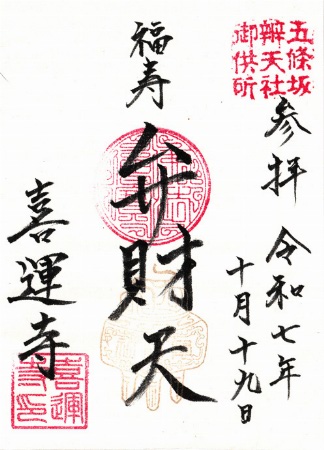 五條坂
辨天社
御供所
参拝 令和七年
十月十九日
福寿
弁財天
喜運寺
喜運
寺印